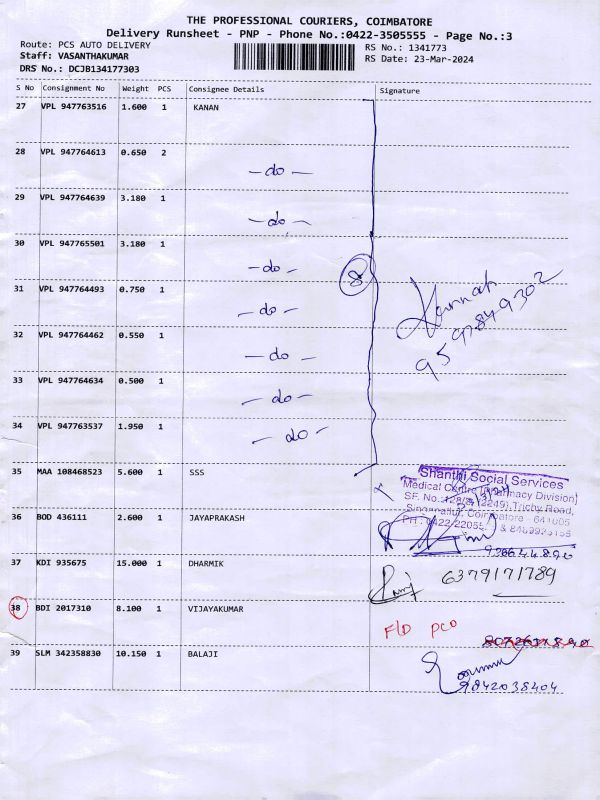 THE PROFESSIONAL COURIERS, COIMBATORE
Delivery Runsheet - PNP - Phone No.:0422-3505555 - Page No.:3
Route: PCS AUTO DELIVERY
RS No.: 1341773
Staff: VASANTHAKUMAR
RS Date: 23-Mar-2024
DRS No.: DCJB134177303
S No Consignment No Weight PCS Consignee Details Signature
27 VPL 947763516 1.600 1 KANAN
28 VPL 947764613 0.650 2 -do-
29 VPL 947764639 3.180 1 -do-
30 VPL 947765501 3.180 1 -do-
8
31 VPL 947764493 0.750 1 -do-
9597849302
32 VPL 947764462 0.550 1 -do-
33 VPL 947764634 0.500 1 -do-
34 VPL 947763537 1.950 1 -do-
35 MAA 108468523 5.600 1 SSS
Shanthi Social Services
Medical Centre (Pharmacy Division)
SF. No.: Trichy Road,
Singanallur, Coimbatore - 641005
36 BOD 436111 2.600 1 JAYAPRAKASH
37 KDI 935675 15.000 1 DHARMIK
6379171789
38 BDI 2017310 8.100 1 VIJAYAKUMAR
39 SLM 342358830 10.150 1 BALAJI
9842038404